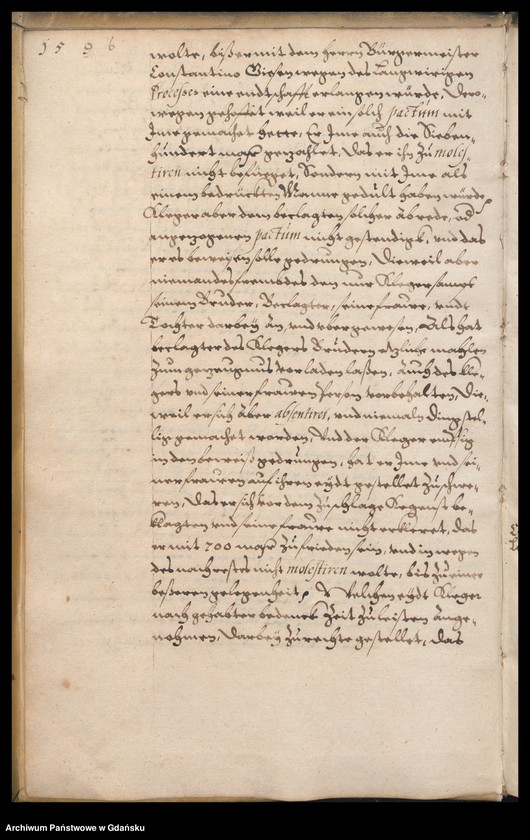 1596
wolte, bißer mit dem herren Bürgermeister
Constantino Giesen wegen des Langwirigen
Processes eine endtschafft erlangen würde, Dero-
wegen gehoffet weil er ein solch pactum mit
Ime gemachet hette, Er Ime auch die Sieben-
hundert marg gezahlet, Das er ihn zu moles-
tiren nicht befüget, Sondern mit Ime als
einem bedruckten Manne gedult haben würde,
Kleger aber dem beclagten solcher abrede, und
angezogenen pactum nicht gestendigk, und das
er es beweysen solle gedrungen, Dieweil aber
niemandes frembdes den nur Kleger sampt
seinem Bruder, Beclagter, seine frawe, undt
Tochter darbey an, und uber gewesen, Als hat
beclagter des Klegers Brudern etzliche mahlen
zum gezeugnus vorladen laßen, auch des Kle-
gers und seiner frawen Person vorbehalten, Die-
weil er sich aber absentiret, und niemaln dingstel-
lig gemachet worden, Und der Kleger auff sig
in den beweiß gedrungen, hat er Ime und sei-
ner frawen auf ihren eydt gestellet zuschwe-
ren, Das er sich vor dem Zuschlage Kegenst be-
klagten und seine frawe nicht erkleret, das
er mit 700 marg zufrieden sein, und in wegen
des nachrestes nicht molestiren wolte, bis zu einer
beßeren gelegenheit, Welchen eydt Kleger
nach gehabter bedenck Zeit zuleisten ange-
nohmen, Darbey zu rechte gestellet, Das
Archiwum Państwowe w Gdańsku